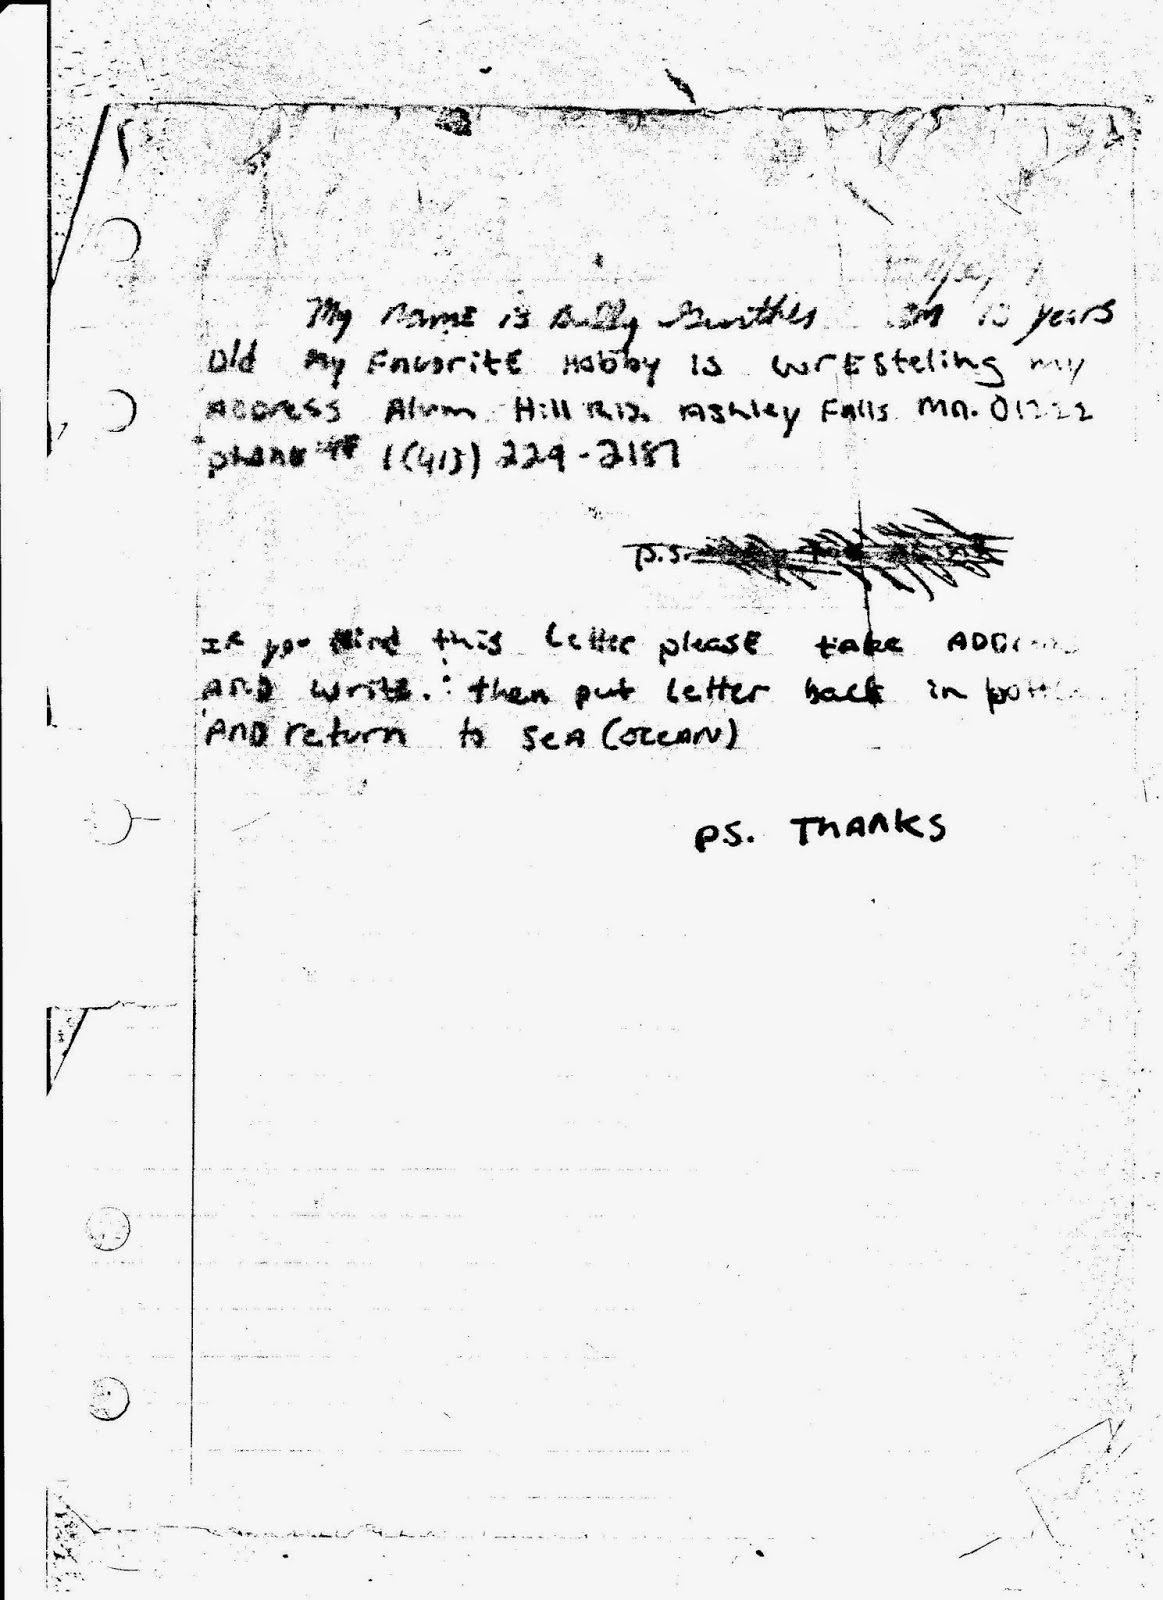 My name is Billy im 13 years
old my Favorite Hobby is wresteling my
ADDress Alum Hill Ashley Falls MA. 01222
phone # 1(413) 229-2187
P.S.
IF you Find this Letter please take
AND write. then put Letter back in
AND return to SeA (OCEAN)
PS. THANKS